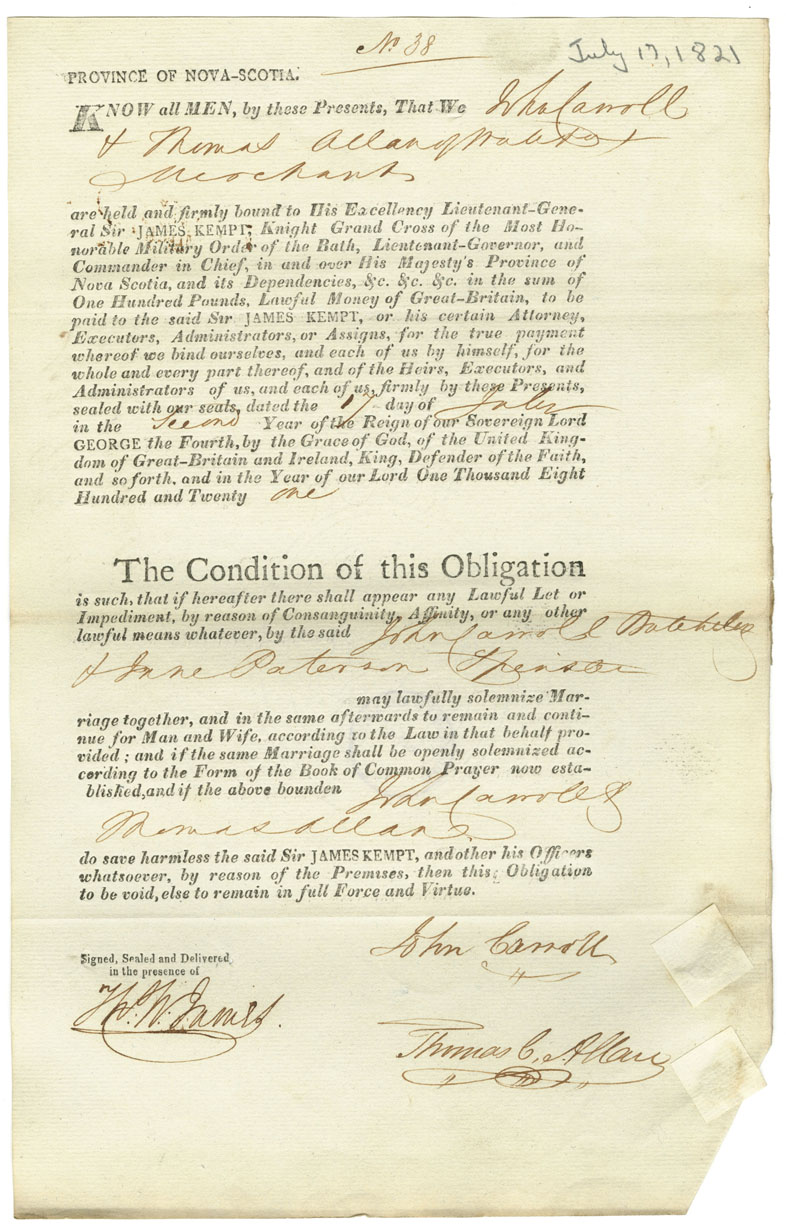 No 38
July 17, 1821
PROVINCE OF NOVA-SCOTIA.
KNOW all MEN, by these Presents, That We John Carroll
& Thomas Allan of Halifax
Merchants
are held and firmly bound to His Excellency Lieutenant-Gene-
ral Sir JAMES KEMPT, Knight Grand Cross of the Most Ho-
norable Military Order of the Bath, Lieutenant-Governor, and
Commander in Chief, in and over His Majesty's Province of
Nova Scotia, and its Dependencies, &c. &c. &c. in the sum of
One Hundred Pounds, Lawful Money of Great-Britain, to be
paid to the said Sir JAMES KEMPT, or his certain Attorney,
Executors, Administrators, or Assigns, for the true payment
whereof we bind ourselves, and each of us by himself, for the
whole and every part thereof, and of the Heirs, Executors, and
Administrators of us, and each of us, firmly by these Presents,
sealed with our seals, dated the 17 day of July
in the Second Year of the Reign of our Sovereign Lord
GEORGE the Fourth, by the Grace of God, of the United King-
dom of Great-Britain and Ireland, King, Defender of the Faith,
and so forth, and in the Year of our Lord One Thousand Eight
Hundred and Twenty one
The Condition of this Obligation
is such, that if hereafter there shall appear any Lawful Let or
Impediment, by reason of Consanguinity, Affinity, or any other
lawful means whatever, by the said John Carroll Batchelor
& Jane Paterson Spinster
may lawfully solemnize Mar-
riage together, and in the same afterwards to remain and conti-
nue for Man and Wife, according to the Law in that behalf pro-
vided; and if the same Marriage shall be openly solemnized ac-
cording to the Form of the Book of Common Prayer now esta-
blished, and if the above bounden John Carroll &
Thomas Allan
do save harmless the said Sir JAMES KEMPT, and other his Officers
whatsoever, by reason of the Premises, then this Obligation
to be void, else to remain in full Force and Virtue.
Signed, Sealed and Delivered
in the presence of
John Carroll
W. James.
Thomas C. Allan